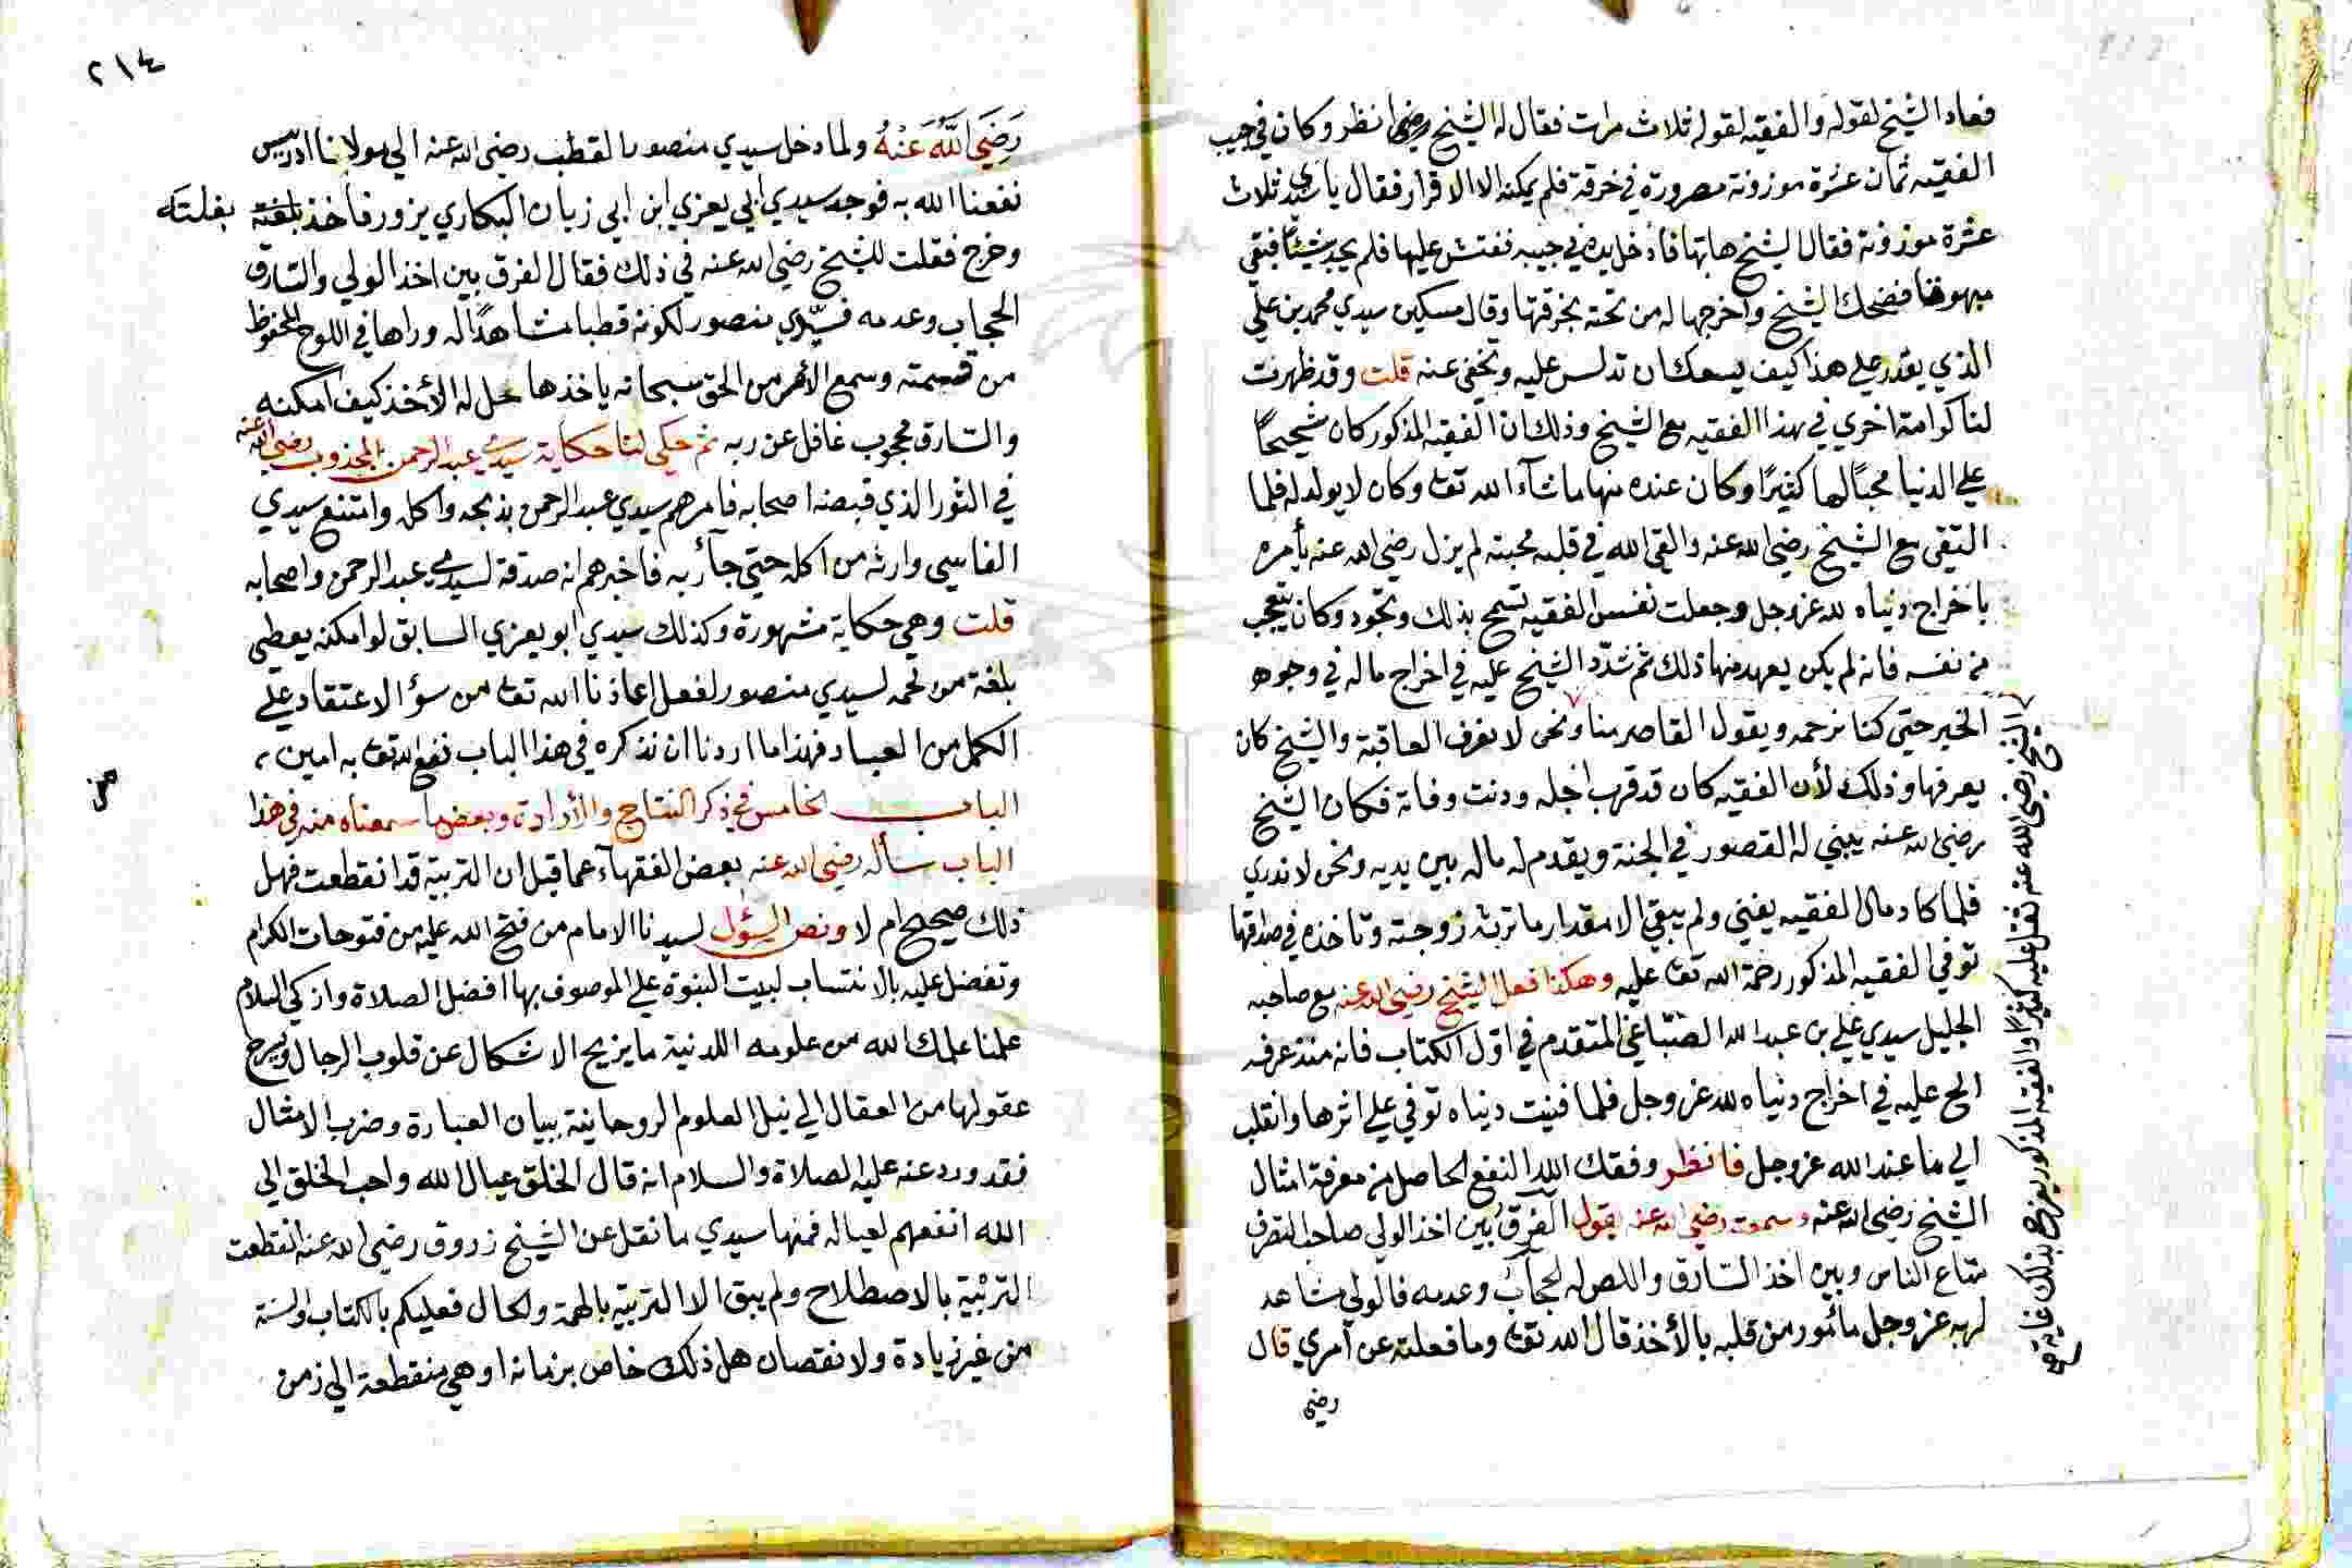 فعاد الشيخ لقوله والفقيه لقوله ثلاث مرات فقال له الشيخ رضي انظر وكان في جيب
الفقيه ثمان عشرة موزونة مصرورة في خرقة فلم يمكنه الا الاقرار فقال يا سيدي ثلاث
عشرة موزونة فقال الشيخ هاتها فادخل يده في جيبه ففتش عليها فلم يجد شيئا فبقي
مبهوتا فضحك الشيخ واخرجها له من تحته بخرقتها وقال مسكين سيدي محمد بن علي
الذي يقدر علي هذا كيف يسعك ان تدلس عليه وتخفي عنه قلت وقد ظهرت
لنا كرامة اخري في هذا الفقيه مع الشيخ وذلك ان الفقيه المذكور كان شحيحًا
علي الدنيا محبًا لها كثيرًا وكان عنده منها ما شآء الله تعا وكان لا يولد له فلما
التقي مع الشيخ رضي الله عنه والقي الله في قلبه محبته لم يزل رضي الله عنه يأمره
باخراج دنياه لله عز وجل وجعلت نفس الفقيه تسمح بذلك وتجود وكان يتعجب
من نفسه فانه لم يكن يعهد منها ذلك ثم شدّد الشيخ عليه في اخراج ماله في وجوه
الخير حتي كنا نرحمه ويقول القاصر منا ونحن لا نعرف العاقبة والشيخ كان
يعرفها وذلك لأن الفقيه كان قد قرب اجله ودنت وفاته فكان الشيخ
رضي الله عنه يبني له القصور في الجنة ويقدم له ماله بين يديه ونحن لا ندري
فلما كاد مال الفقيه يفني ولم يبقي الا مقدار ما ترثه زوجته وتاخذه في صداقها
توفي الفقيه المذكور رحمة الله تعا عليه وهكذا فعل الشيخ رضي الله عنه مع صاحبه
الجليل سيدي علي بن عبد الله الصباغي المتقدم في اوّل الكتاب فانه منذ عرفه
الح عليه في اخراج دنياه لله عز وجل فلما فنيت دنياه توفي علي اثرها وانقلب
الي ما عند الله عز وجل فانظر وفقك الله النفع الحاصل من معرفة امثال
الشيخ رضي الله عنه وسمعته رضي الله عنه يقول الفرق بين اخذ الولي صاحب التصرف
متاع الناس وبين اخذ السارق واللص له الحجاب وعدمه فالولي مشاهد
لربه عز وجل مأمور من قلبه بالأخذ قال الله تعا وما فعلته عن أمري قال
رضي
الشيخ رضي الله عنه ثقل عليه كثيرًا والفقيه المذكور يفرح بذلك غاية
٢١٤
رَضِيَ اللَّهُ عَنْهُ ولما دخل سيدي منصور القطب رضي الله عنه الي مولانا ادريس
نفعنا الله به فوجد سيدي ابي يعزي ابن ابي زيان البكاري يزور فأخذ بلغته
بغلته
وخرج فقلت للشيخ رضي الله عنه في ذلك فقال الفرق بين اخذ الولي والسارق
الحجاب وعدمه فسيّدي منصور لكونه قطبا مشاهدًا له وراها في اللوح المحفوظ
من قسمته وسمع الأمر من الحق سبحانه ياخذها حل له الأخذ كيف امكنه
والسارق محجوب غافل عن ربه ثم حكي لنا حكاية سيدي عبد الرحمن المجذوب رضي الله عنه
في الثور الذي قبضه اصحابه فامرهم سيدي عبد الرحمن بذبحه واكله وامتنع سيدي
الفاسي وارثه من اكله حتي جآء ربه فاخبرهم انه صدقة لسيدي عبد الرحمن واصحابه
قلت وهي حكاية مشهورة وكذلك سيدي ابو يعزي السابق لو امكنه يعطي
بلغة من لحمه لسيدي منصور لفعل اعاذنا الله تعا من سؤ الاعتقاد علي
الكمل من العباد فهذا ما اردنا ان نذكره في هذا الباب نفع الله تعا به امين
الباب الخامس في ذكر التشايخ والارادة وبعض ما سمعناه منه في هذا
الباب سأله رضي الله عنه بعض الفقهآء عما قيل ان التربية قد انقطعت فهل
ذلك صحيح ام لا ونص السؤل لسيدنا الامام من فتح الله عليه من فتوحات الكرام
وتفضل عليه بالانتساب لبيت النبوة علي الموصوف بها افضل الصلاة وازكي السلام
علمنا علمك الله من علومه اللدنية ما يزيح الاشكال عن قلوب الرجال ويسرح
عقولها من العقال الي نيل العلوم الروحانية ببيان العبارة وضرب الامثال
فقد ورد عنه عليه الصلاة والسلام انه قال الخلق عيال الله واحب الخلق الي
الله انفعهم لعياله فمنها سيدي ما نقل عن الشيخ زروق رضي الله عنه انقطعت
التربية بالاصطلاح ولم يبق الا التربية بالهمة والحال فعليكم بالكتاب والسنة
من غير زيادة ولا نقصان هل ذلك خاص بزمانه او هي منقطعة الي زمن